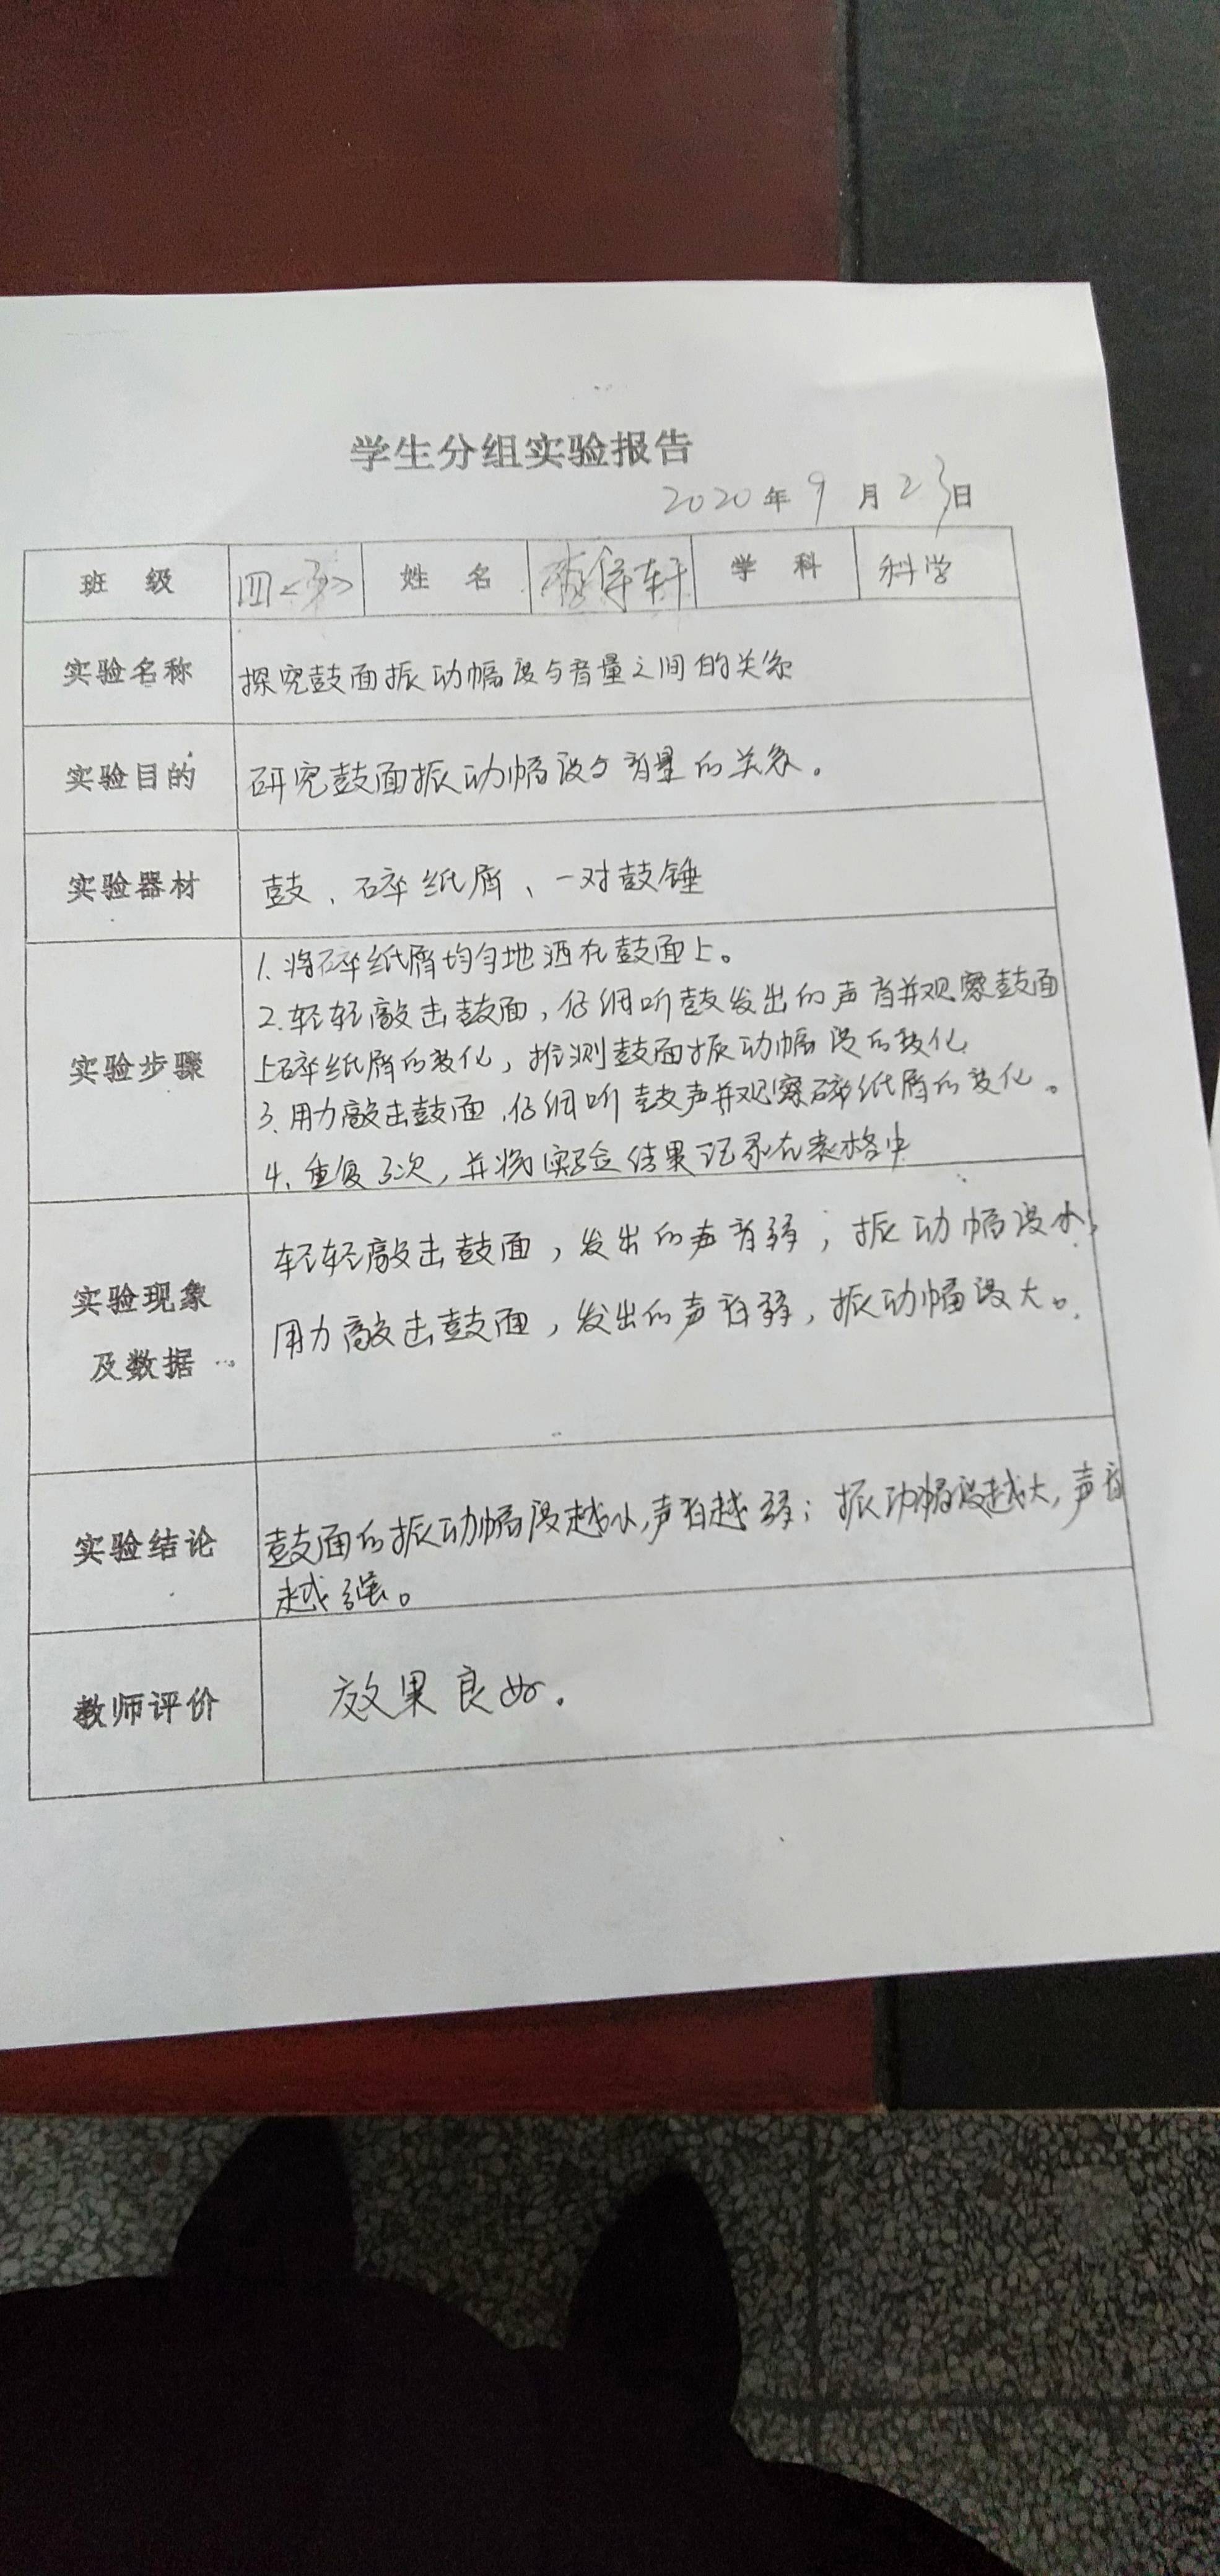 学生分组实验报告
2020年9月23日
班 级 四<3> 姓 名 轩 学 科 科学
实验名称 探究鼓面振动幅度与音量之间的关系
实验目的 研究鼓面振动幅度与音量的关系。
实验器材 鼓、碎纸屑、一对鼓锤
实验步骤
1.将碎纸屑均匀地洒在鼓面上。
2.轻轻敲击鼓面,仔细听鼓发出的声音并观察鼓面
上碎纸屑的变化,推测鼓面振动幅度的变化
3.用力敲击鼓面,仔细听鼓声并观察碎纸屑的变化。
4.重复3次,并将实验结果记录在表格中
实验现象
及数据
轻轻敲击鼓面,发出的声音弱,振动幅度小,
用力敲击鼓面,发出的声音弱,振动幅度大。
实验结论
鼓面的振动幅度越小,声音越弱;振动幅度越大,声音
越强。
教师评价 效果良好.